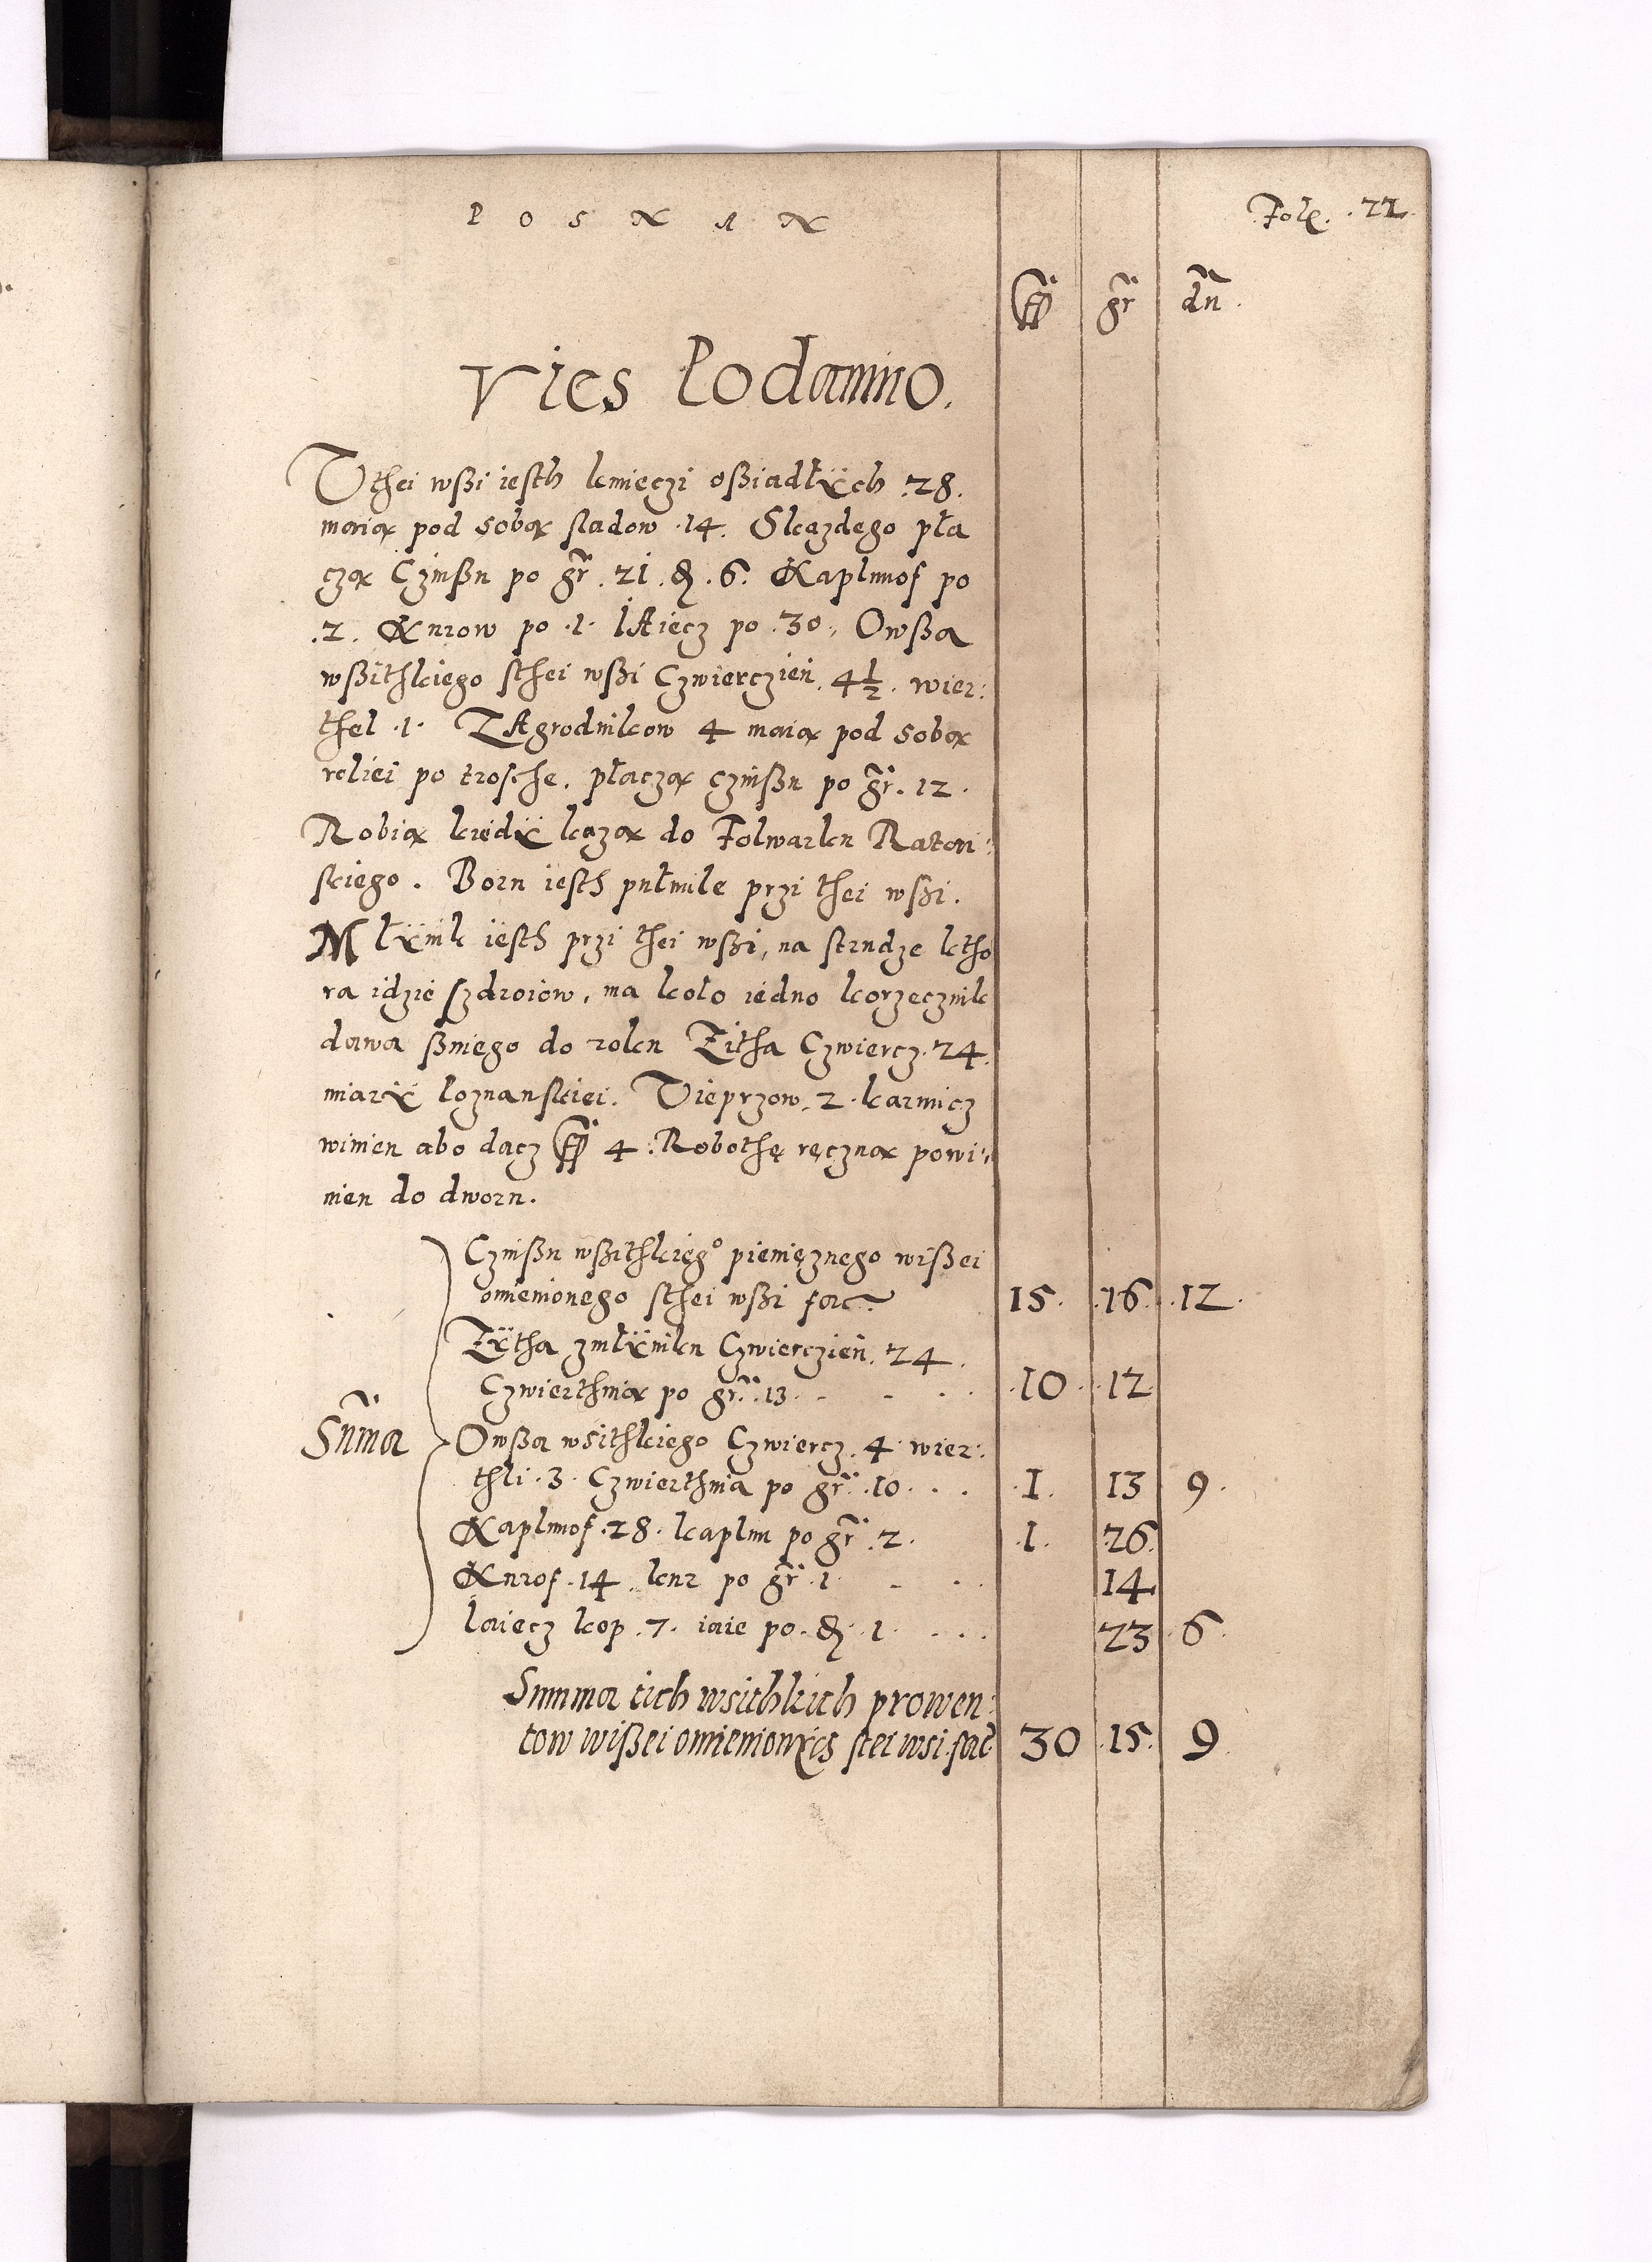 POSNAN
Fol. 22
fl gr dn
Vies Podanino.
Vthei wßi iesth kmieczi oßiadłÿch .28.
maią pod sobą sladow .14. Skazdego pła
czą Czinßu po gr .21. ꝸ .6. Kapłunof po
.2. Kurow po .1. IAiecz po .30. Owßa
wßithkiego sthei wßi Czwierczien. 4½. wier:
thel .1. ZAgrodnikow 4 maią pod sobą
roliei po trosche. płaczą czinßu po gr. 12.
Robią kiedÿ kazą do Folwarku Ratai:
skiego. Boru iesth pułmile przi thei wßi.
Młÿnik iesth przi thei wßi, na strudze ktho
ra idzie szdroiow, ma koło iedno korzecznik
dawa ßniego do roku Zitha Czwiercz. 24.
miarÿ Poznanskiei. Vieprzow. 2. karmicz
winien abo dacz fl 4: Robothę ręczną powi:
nien do dworu.
Czinßu wßithkiego pieniężnego wißei
omienionego sthei wßi fac. 15. .16. .12.
Zÿtha zmłÿniku Czwierczien. 24.
Czwierthnia po gr. .13. .10. .12.
Suma Owßa wsithkiego Czwiercz. 4. wier:
thli .3. Czwierthnia po gr. .10. .1. 13 9.
Kapłunof .28. kapłun po gr .2. .1. .26.
Kurof .14. kur po gr .1. 14.
Iaiecz kop .7. iaie po. ꝸ .1. 23 6.
Summa tich wsithkich prowen:
tow wißei omienionÿch stei wsi. fac. 30 .15. 9.